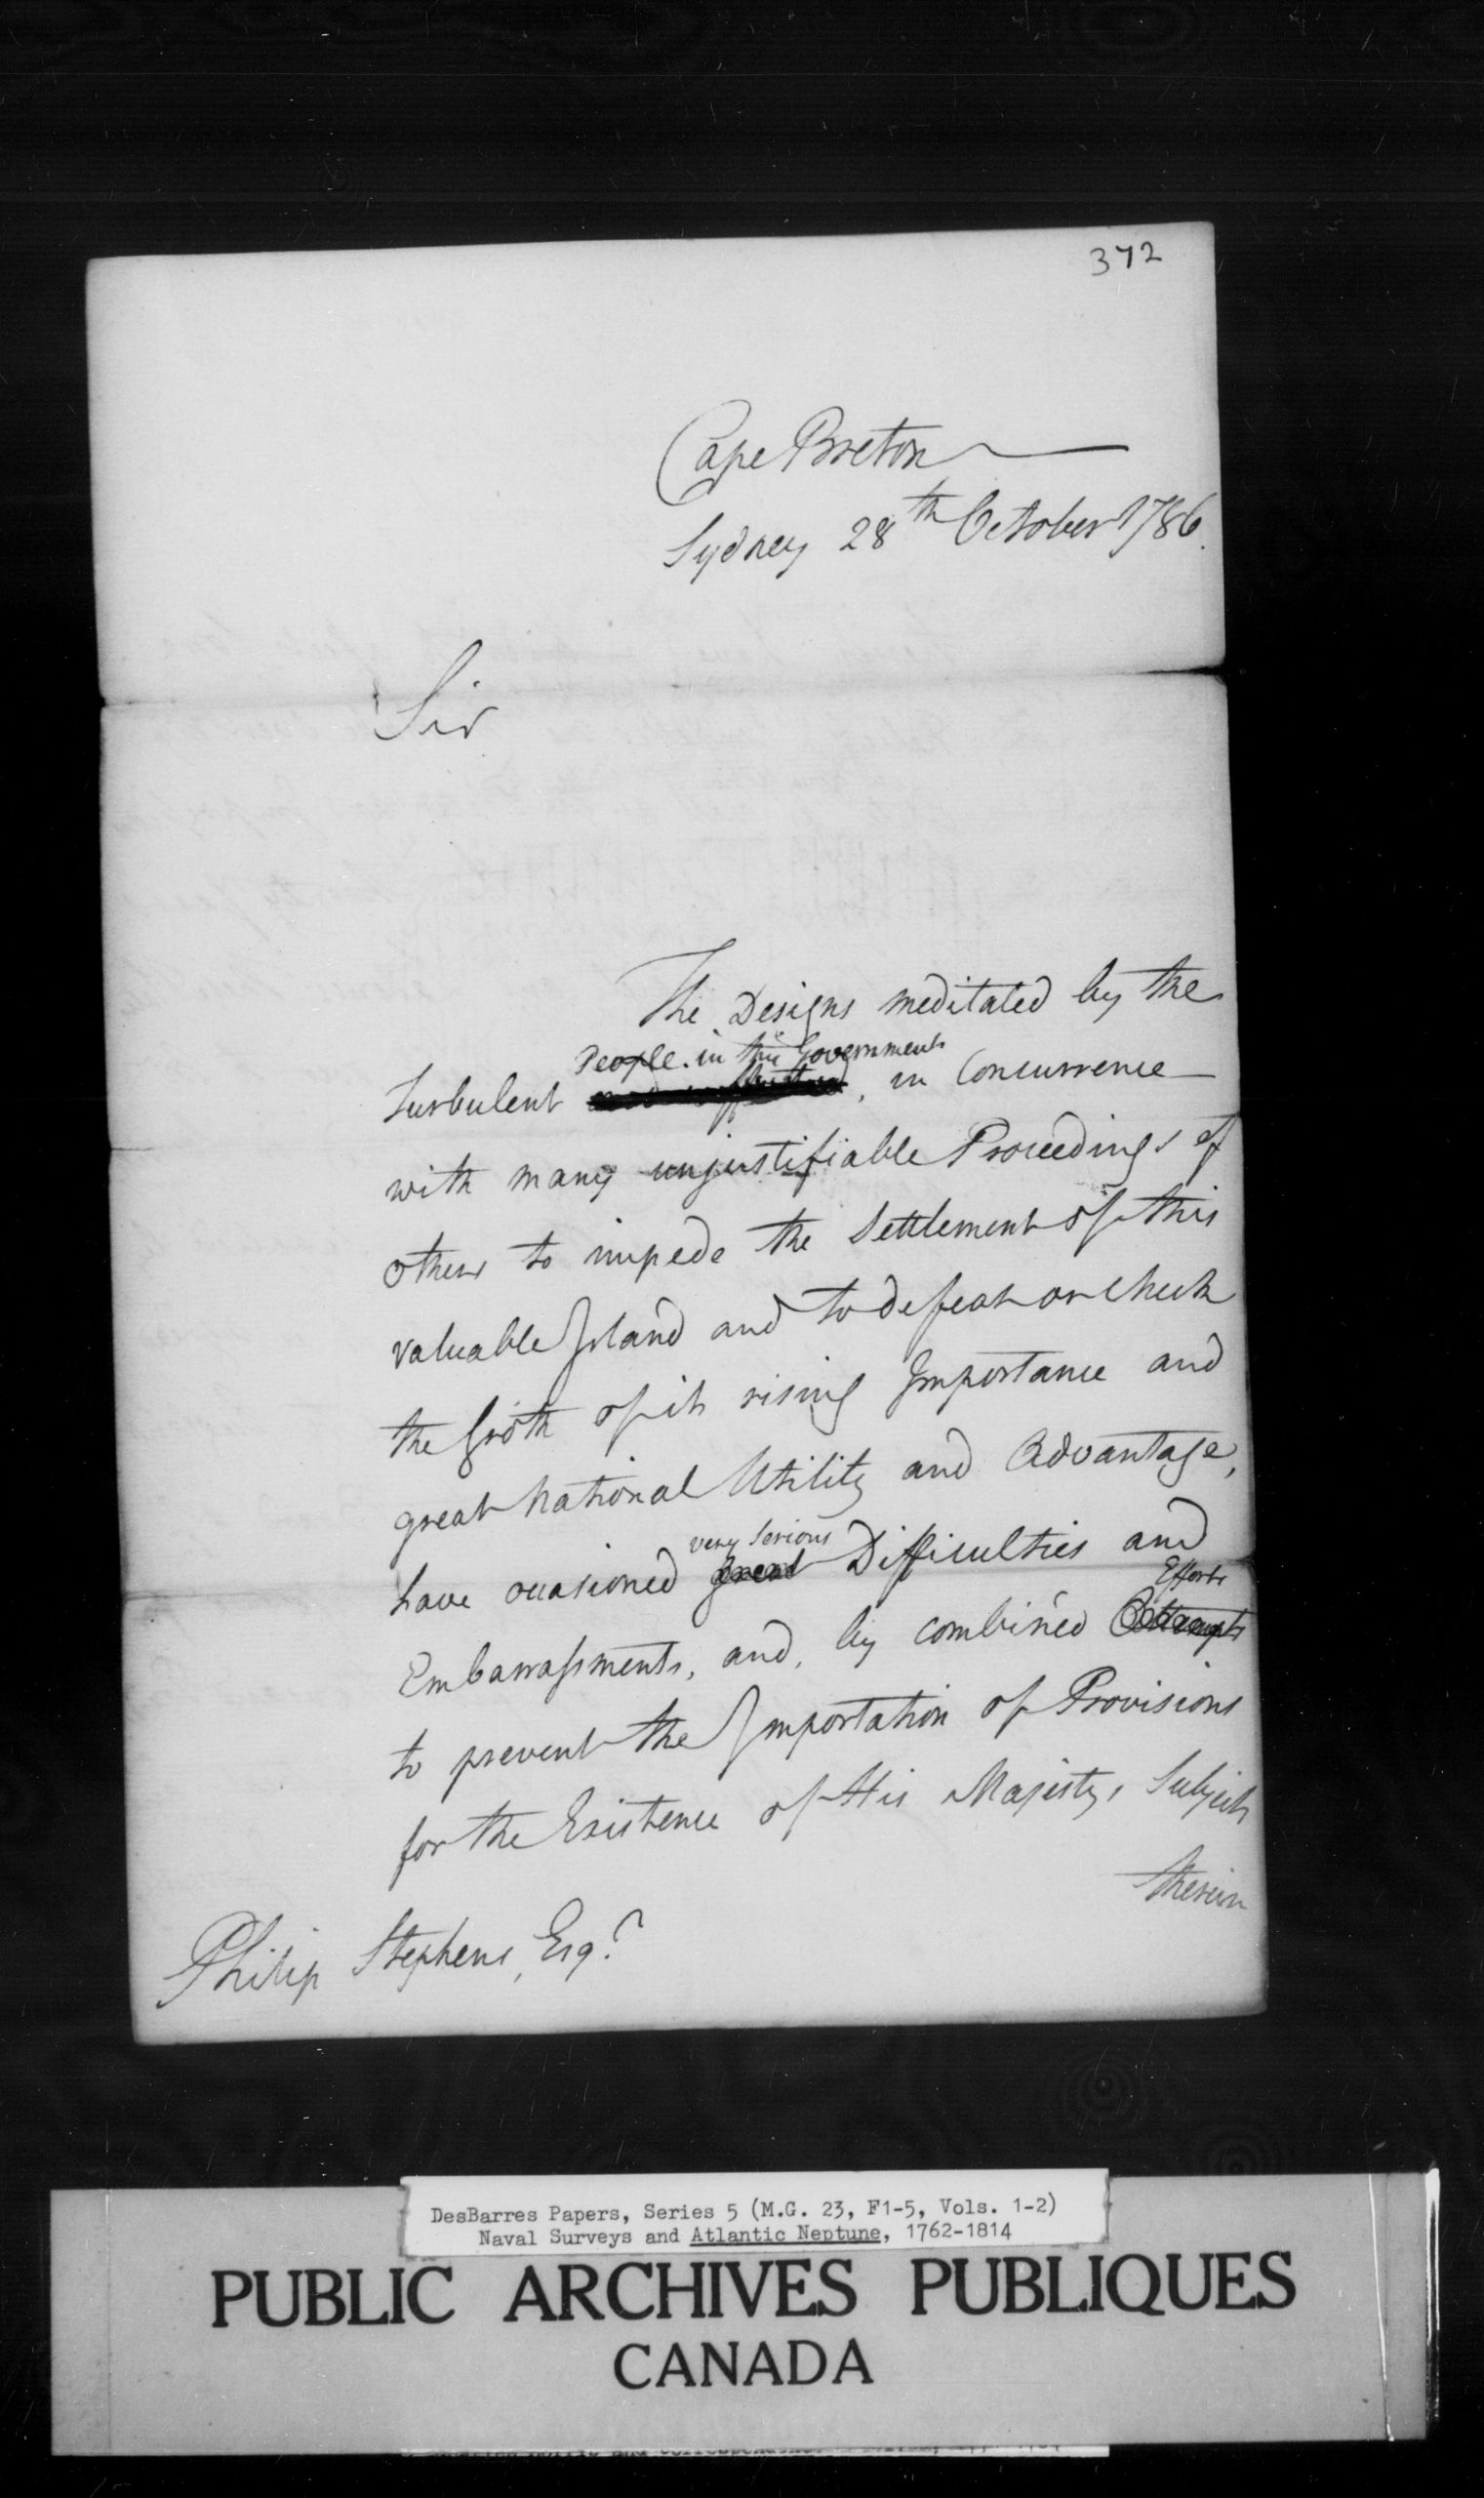 372
Cape Breton
Sydney 28th October 1786.
Sir
The Designs meditated by the
People in this Government
Turbulent , in Concurrence
with many unjustifiable Proceedings of
others to impede the Settlement of this
valuable Island and to defeat or check
the Groth of its rising Importance and
great National Utility and Advantage,
very serious
have occasioned great Difficulties and
Efforts
Embarrassments, and, by combined Attempts
to prevent the Importation of Provisions
for the Existence of His Majesty's Subjects
therein
Philip Stephens, Esqr.
DesBarres Papers, Series 5 (M.G. 23, F1-5, Vols. 1-2)
Naval Surveys and Atlantic Neptune, 1762-1814
PUBLIC ARCHIVES PUBLIQUES
CANADA